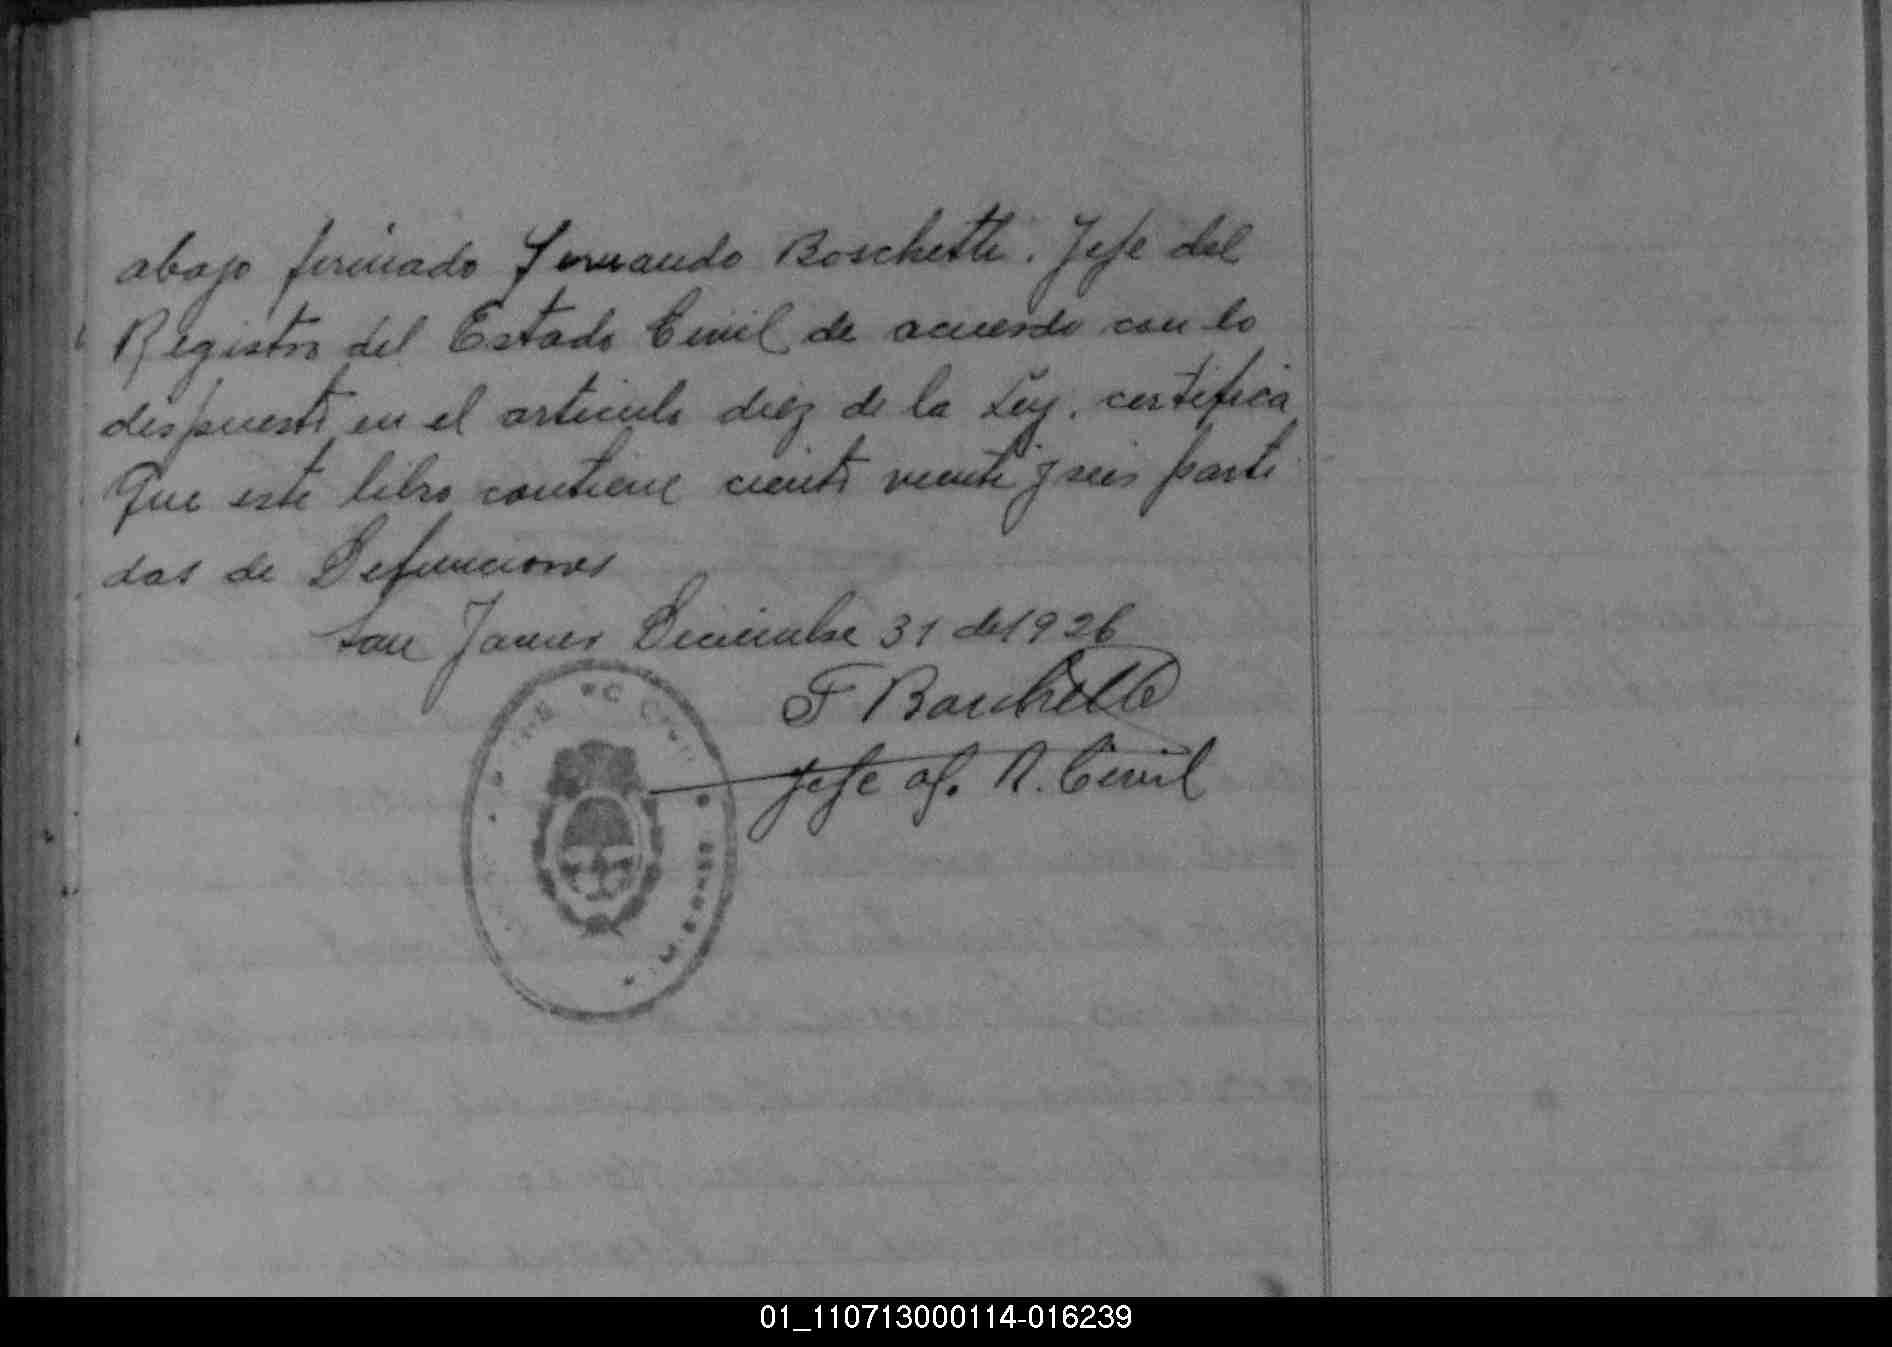 abajo firmado Fernando Boschetti. Jefe del
Registro del Estado Civil de acuerdo con lo
dispuesto en el articulo diez de la Ley, certifica
Que este libro contiene ciento veinte y seis parti
das de Defunciones
San Javier Diciembre 31 de 1926
F Boschetti
Jefe of. R. Civil
MISIONES
01_110713000114-016239